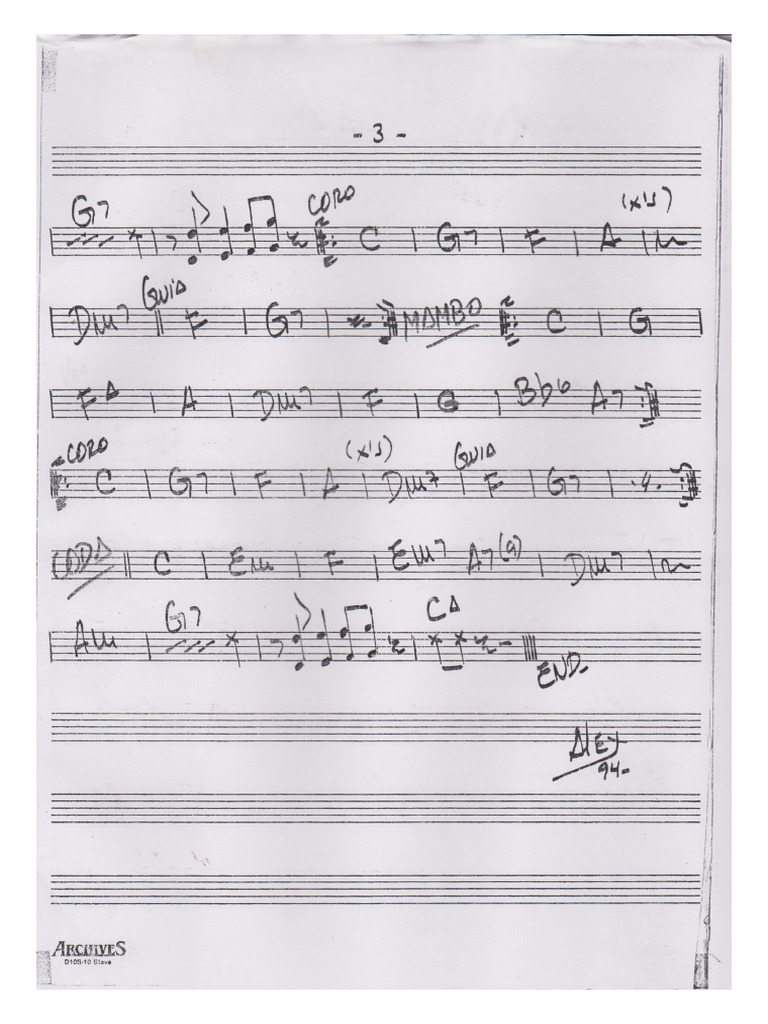 - 3 -
G7 CORO (x's)
C G7 F A
Dm7 GUIA F G7 MAMBO C G
F△ A Dm7 F G Bb6 A7
CORO (x's) GUIA
C G7 F A Dm7 F G7
CODA C Em F Em7 A7(9) Dm7
Am G7 C△
END-
Alex
94-
ARCHIVES
D10S-10 Stave